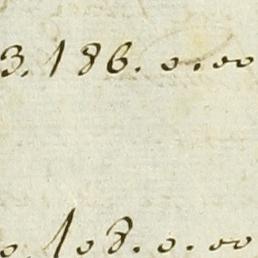 3.186.0.00
0.108.0.00